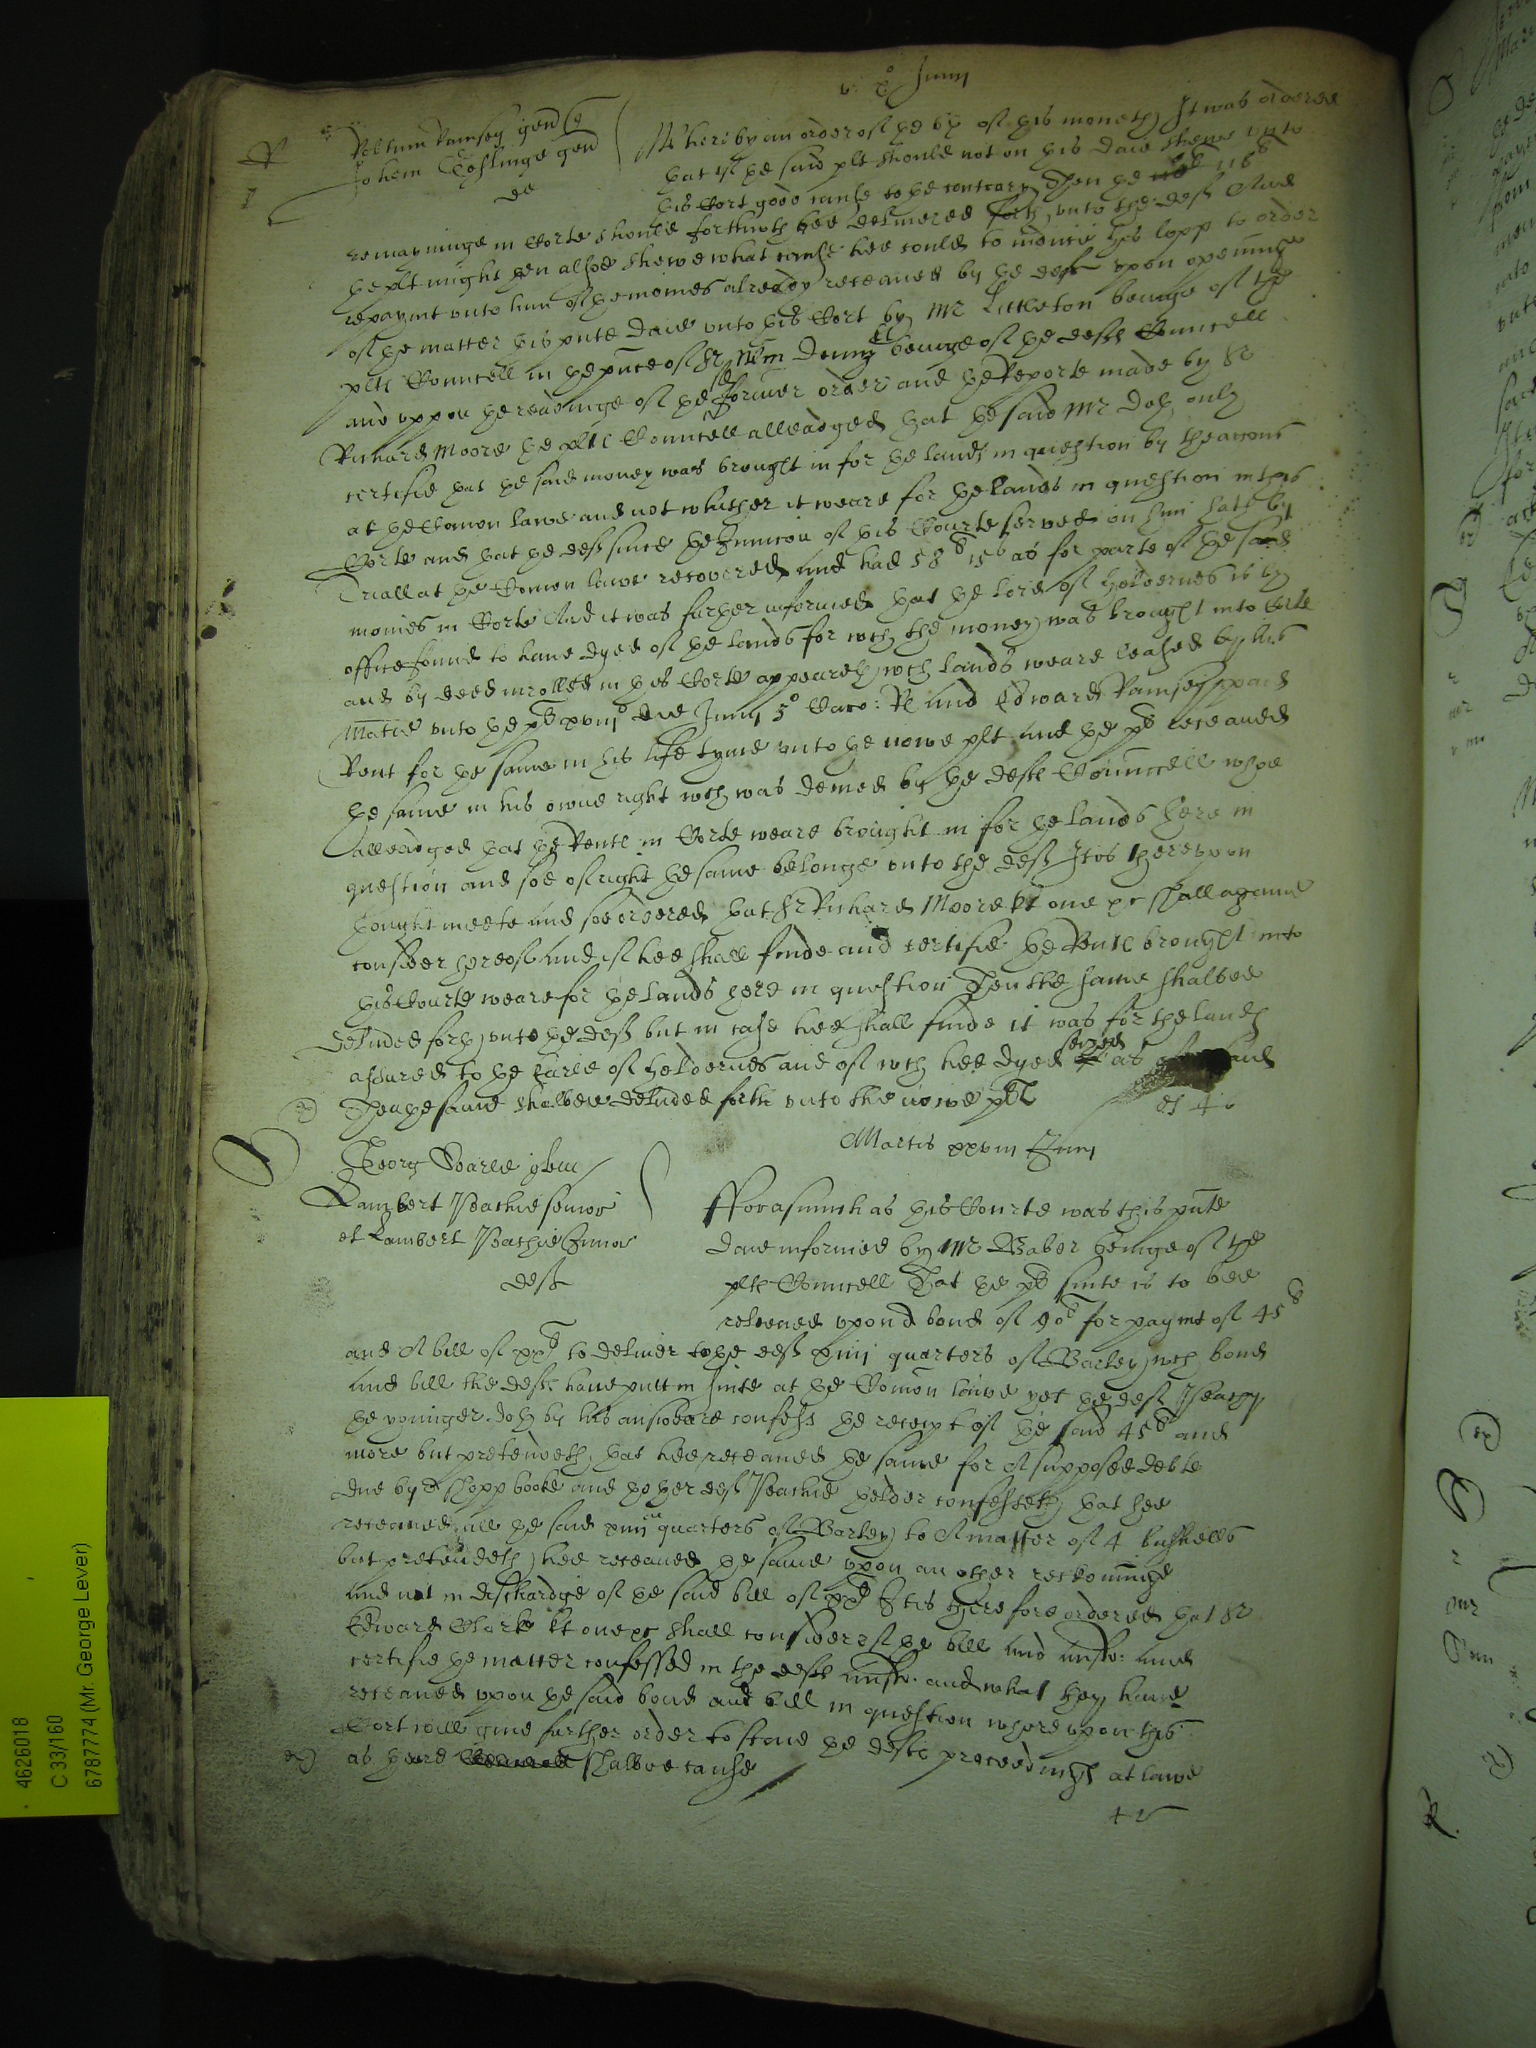 Junij
Ramsey gen
Johem Goslinge gen
de
Whereby an order of the of this moneth It was ordered
that if the said plt should not on this daie shewe unto
this Cort good cause to the contrary Then the 118
remayninge in Corte should forthwth bee delivered forth unto the deft And
the plt might then alsoe shewe what cause hee could to induce this Copp to order
repaymt unto him of the monies already receaved by the deft upon openinge
of the matter this pnte daie unto this Cort by Mr Littleton beinge of the
plts Councell in the pnce of Sr Wm Denny beinge of the defts Councell
and uppon the readinge of the sd former order and the Reporte made by Sr
Richard Moore the plts Councell alleadged that the said Mr Doth only
certifie that the said money was brought in for the lands in question by theaccons
at the Comon lawe and not whither it weare for the lands in question in this
Corte and that the deft since the Iniuncon of this Courte served on him hath by
Triall at the Comon lawe recovered and had 58 15s as for parte of the said
monies in Corte And it was further informed that the lord of Holdernes is by
office found to have dyed of the lands for wch the money was brought into Corte
and by deed inrolled in this Corte appeareth wch lands weare leased by his
Matie unto the pt xviijo die Junij 5o Caro: R And Edward Ramsey paid
Rent for the same in his life tyme unto the nowe plt and the pt receaved
the same in his owne right wch was denied by the defts Councell whoe
alleadged that the Rents in Corte weare brought in for the lands here in
question and soe of right the same belonge unto the deft It is thereupon
thought meete and soe ordered that Sr Richard Moore kt one &c shall againe
consider thereof And if hee shall finde and certifie the Rents brought into
this Courte weare for the lands here in question Then the same shalbee
delivded forth unto the deft but in case hee shall finde it was for the lands
assured to the Earle of Holdernes and of wch hee dyed seized as
Then the same shalbee delivded forth unto the nowe plt
Martis xxviij Junij
Georg Searle plten
Lambert Peachie senior
et Lambert Peachie Junior
deft
Fforasmuch as this Courte was this pnte
daie informed by Mr Baber beinge of the
plts Councell That the pt suite is to bee
releeved upon a bond of 90l for paymt of 45l
and A bill of xxl to deliver to the deft xiiij quarters of Barley wch bond
and bill the defts have putt in suite at the Comon lawe yet the deft Peachy
the younger doth by his answeare confess the receipt of the said 45l and
more but pretendeth that hee receaved the same for A supposed debte
due by A shopp booke and thother deft Peachie thelder confesseth that hee
receaved all the said xiiij quarters of Barley to A matter of 4 bushells
but pretendeth hee receaved the same upon an other reckoninge
and not in dischardge of the said bill of xxl It is therefore ordered that Sr
Edward Clark kt one &c shall consider of the bill and answ: and
certifie the matter confessed in the defts answ: and what they have
receaved upon the said bond and bill in question whereupon this
Cort will give further order to staie the defts proceedings at lawe
as there shalbee cause
4626018
C 33/160
6787774 (Mr. George Lever)